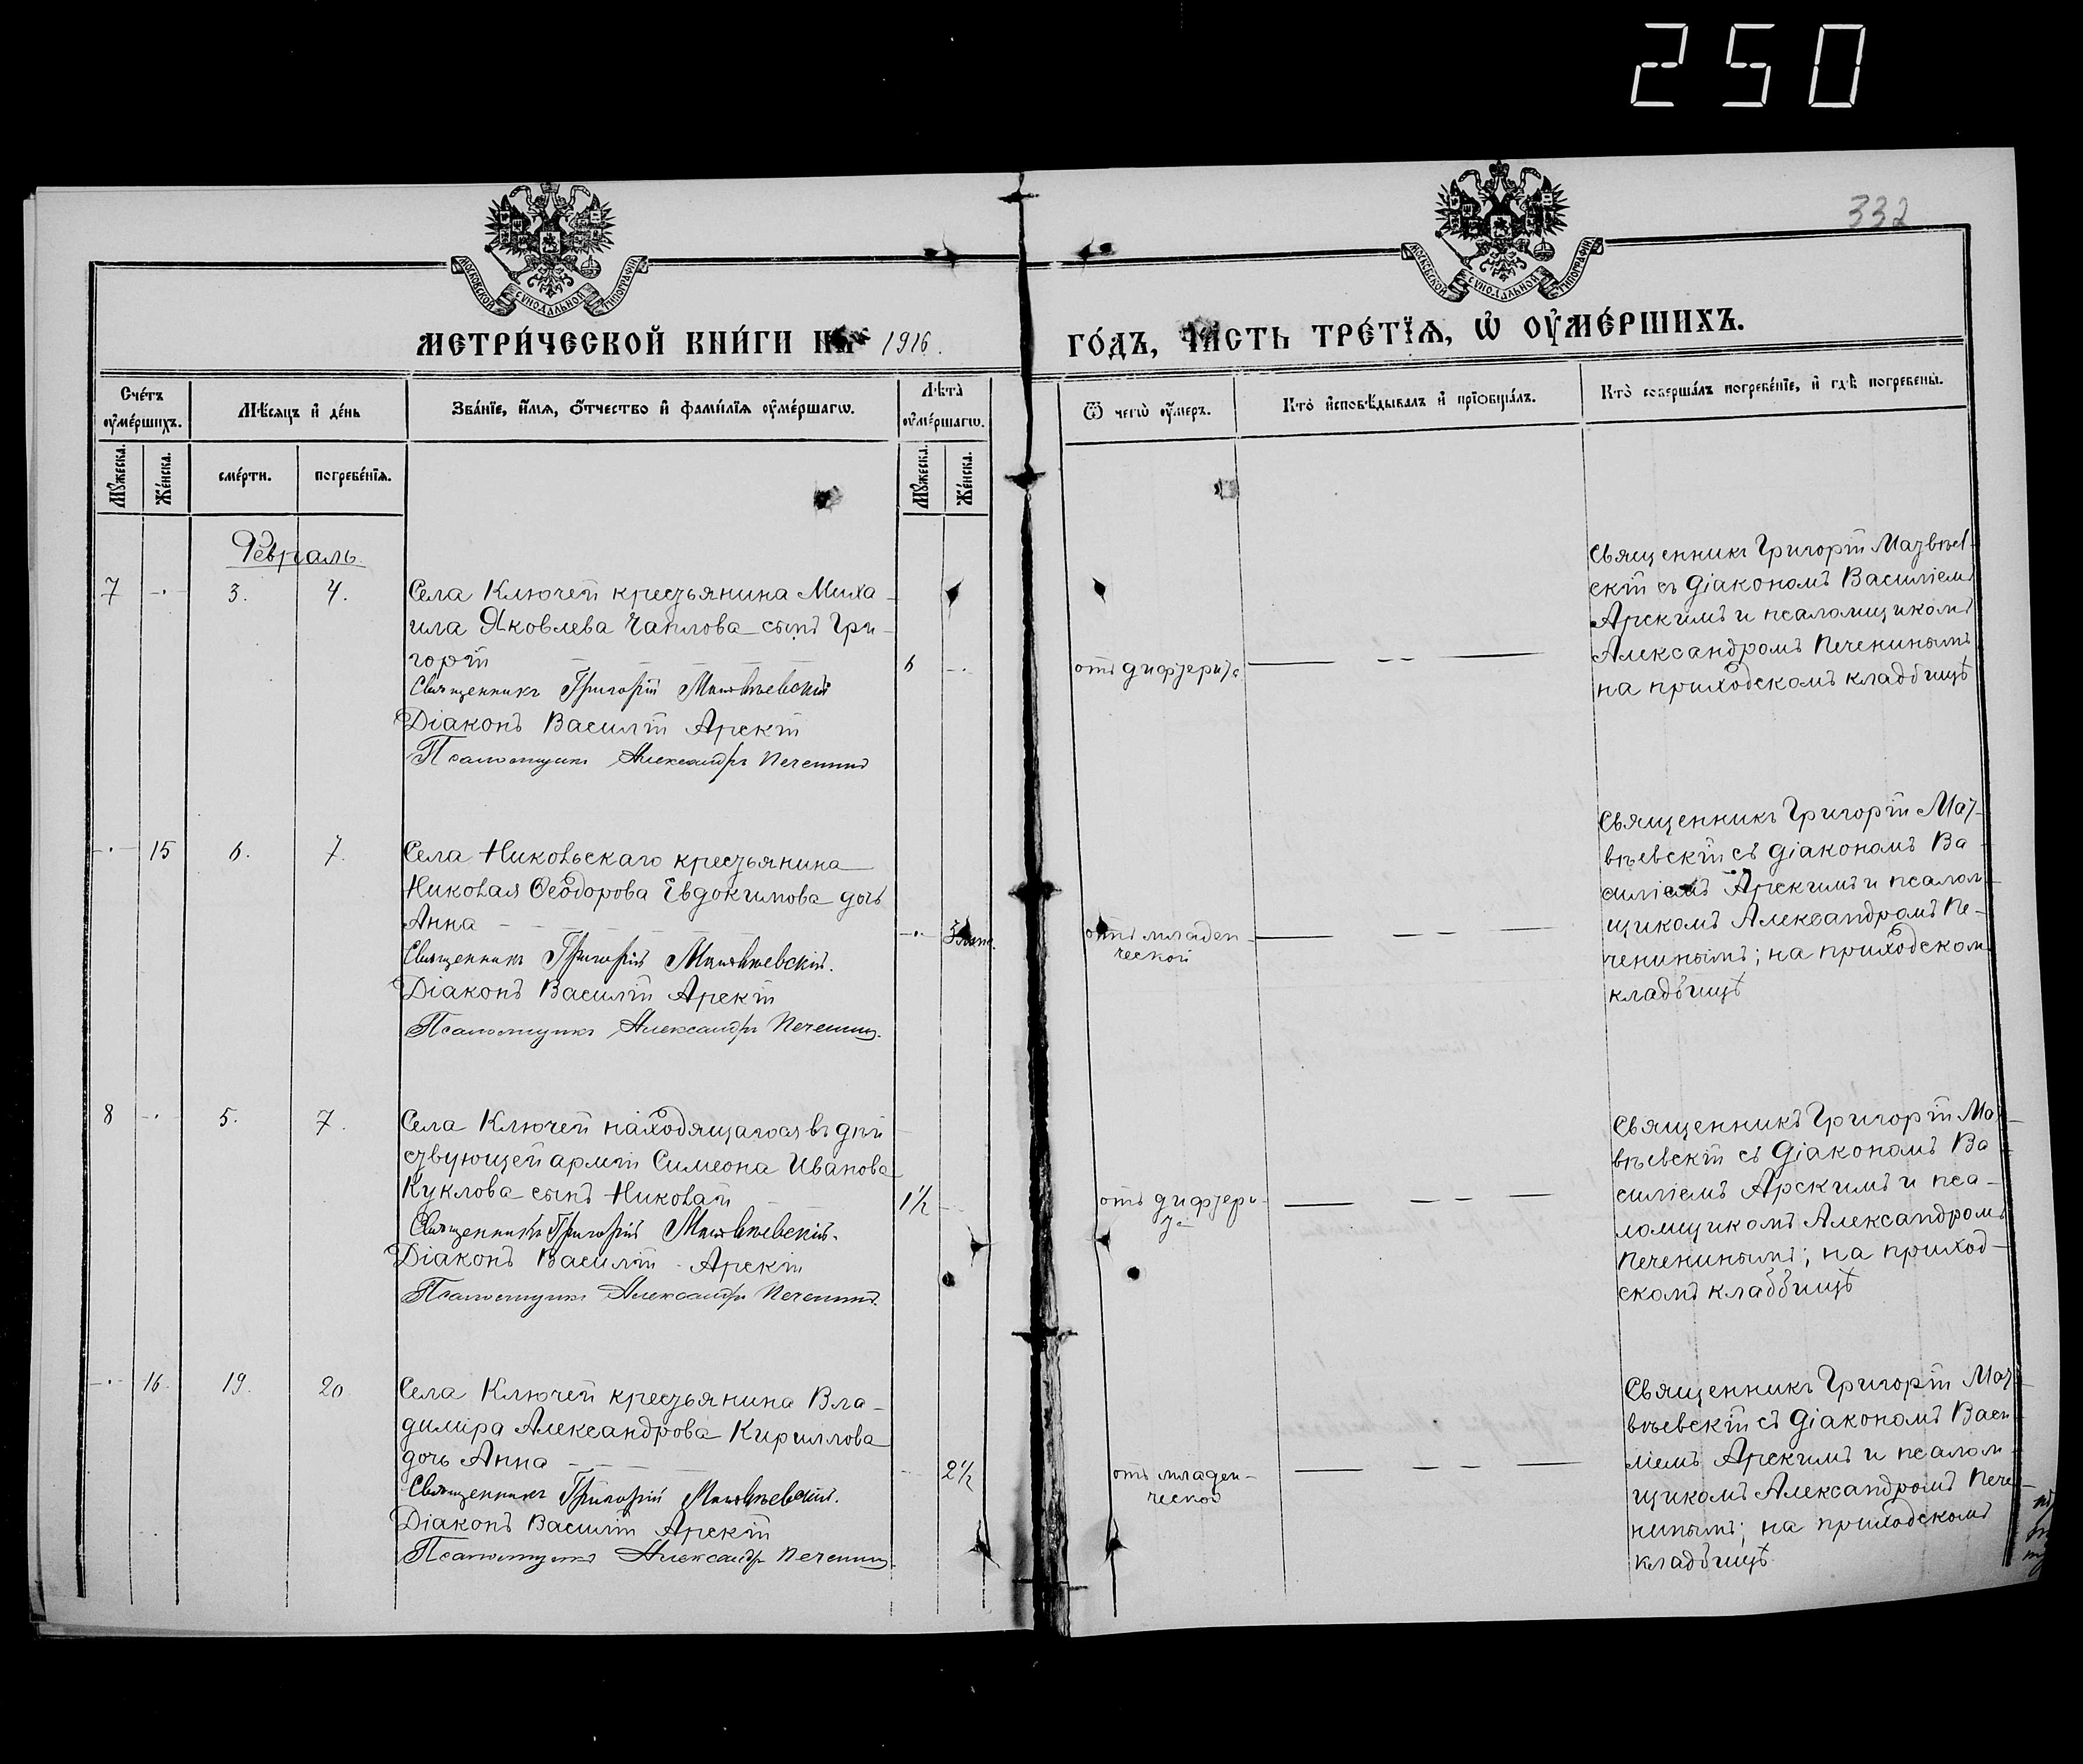 250
332
МОСКОВСКОЙ СѴНОДАЛЬНОЙ ТИПОГРАФІИ
МОСКОВСКОЙ СѴНОДАЛЬНОЙ ТИПОГРАФІИ
МЕТРИ́ЧЕСКОЙ КНИ́ГИ НА 1916.
ГО́ДЪ, ЧА́СТЬ ТРЕ́ТЇѦ, Ѡ҆ ОУ҆МЕ́РШИХЪ.
Сче́тъ оу҆ме́ршихъ.
Мꙋ́жеска.
Же́нска.
Мѣ́сѧцъ и҆ де́нь
сме́рти.
погребе́нїѧ.
Зва́нїе, и҆́мѧ, ѻ҆́тчество и҆ фами́лїѧ оу҆ме́ршагѡ.
Лѣ́та оу҆ме́ршагѡ.
Мꙋ́жеска.
Же́нска.
Ѿ чегѡ̀ оу҆́меръ.
Кто̀ и҆сповѣ́дывалъ и҆ прїѻбща́лъ.
Кто̀ соверша́лъ погребе́нїе, и҆ гдѣ̀ погребены̀.
Февраль
7 -·- 3. 4.
Села Ключей крестьянина Миха-
ила Яковлева Чаплова сынъ Гри-
горій
Священникъ Григорій Матвѣевскій
Діаконъ Василій Арскій
Псаломщикъ Александръ Печенинъ
6 -·
отъ дифтерита
Священникъ Григорій Матвѣев-
скій съ діакономъ Василіемъ
Арскимъ и псаломщикомъ
Александромъ Печенинымъ
на приходскомъ кладбищѣ
-·- 15 6. 7.
Села Никольскаго крестьянина
Николая Ѳеодорова Евдокимова дочь
Анна
Священникъ Григорій Матвѣевскій.
Діаконъ Василій Арскій
Псаломщикъ Александръ Печенинъ.
-·- 3
отъ младен-
ческой
Священникъ Григорій Мат-
вѣевскій съ діакономъ Ва-
силіемъ Арскимъ и псалом-
щикомъ Александромъ Пе-
ченинымъ; на приходскомъ
кладбищѣ
8 -· 5. 7.
Села Ключей находящагося въ дѣй
ствующей арміи Симеона Иванова
Куклова сынъ Николай
Священникъ Григорій Матвѣевскій.
Діаконъ Василій Арскій
Псаломщикъ Александръ Печенинъ.
1½
отъ дифтери-
та
Священникъ Григорій Мат-
вѣевскій съ діакономъ Ва
силіемъ Арскимъ и пса-
ломщикомъ Александромъ
Печенинымъ; на приход-
скомъ кладбищѣ
-·- 16. 19. 20
Села Ключей крестьянина Вла-
диміра Александрова Кириллова
дочь Анна
Священникъ Григорій Матвѣевскій.
Діаконъ Василій Арскій
Псаломщикъ Александръ Печенинъ.
2½
отъ младен-
ческой
Священникъ Григорій Мат-
вѣевскій съ діакономъ Васи
ліемъ Арскимъ и псалом-
щикомъ Александромъ Пече-
нинымъ; на приходскомъ
кладбищѣ